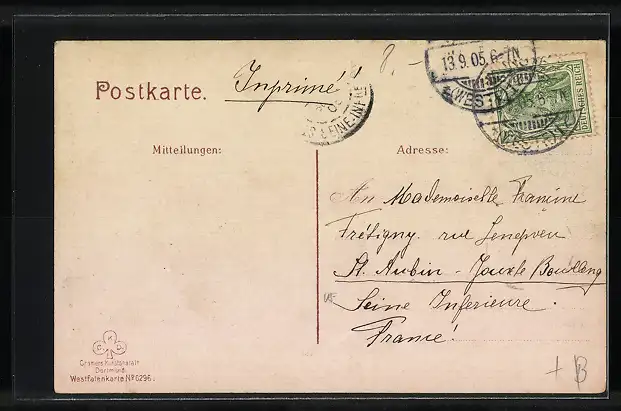 Postkarte.
Inprimé!
8. -
13.9.05.6-7N
(WESTF.)
SEINE-INFRE
DEUTSCHES REICH
Mitteilungen:
Adresse:
An Mademoiselle Francine
Frétigny. rue Lenepveu
St. Aubin - Jouxte Boulleng
Seine Inferieure.
France!
C K D
Cramers Kunstanstalt
Dortmund.
Westfalenkarte. No 6296.
+ B